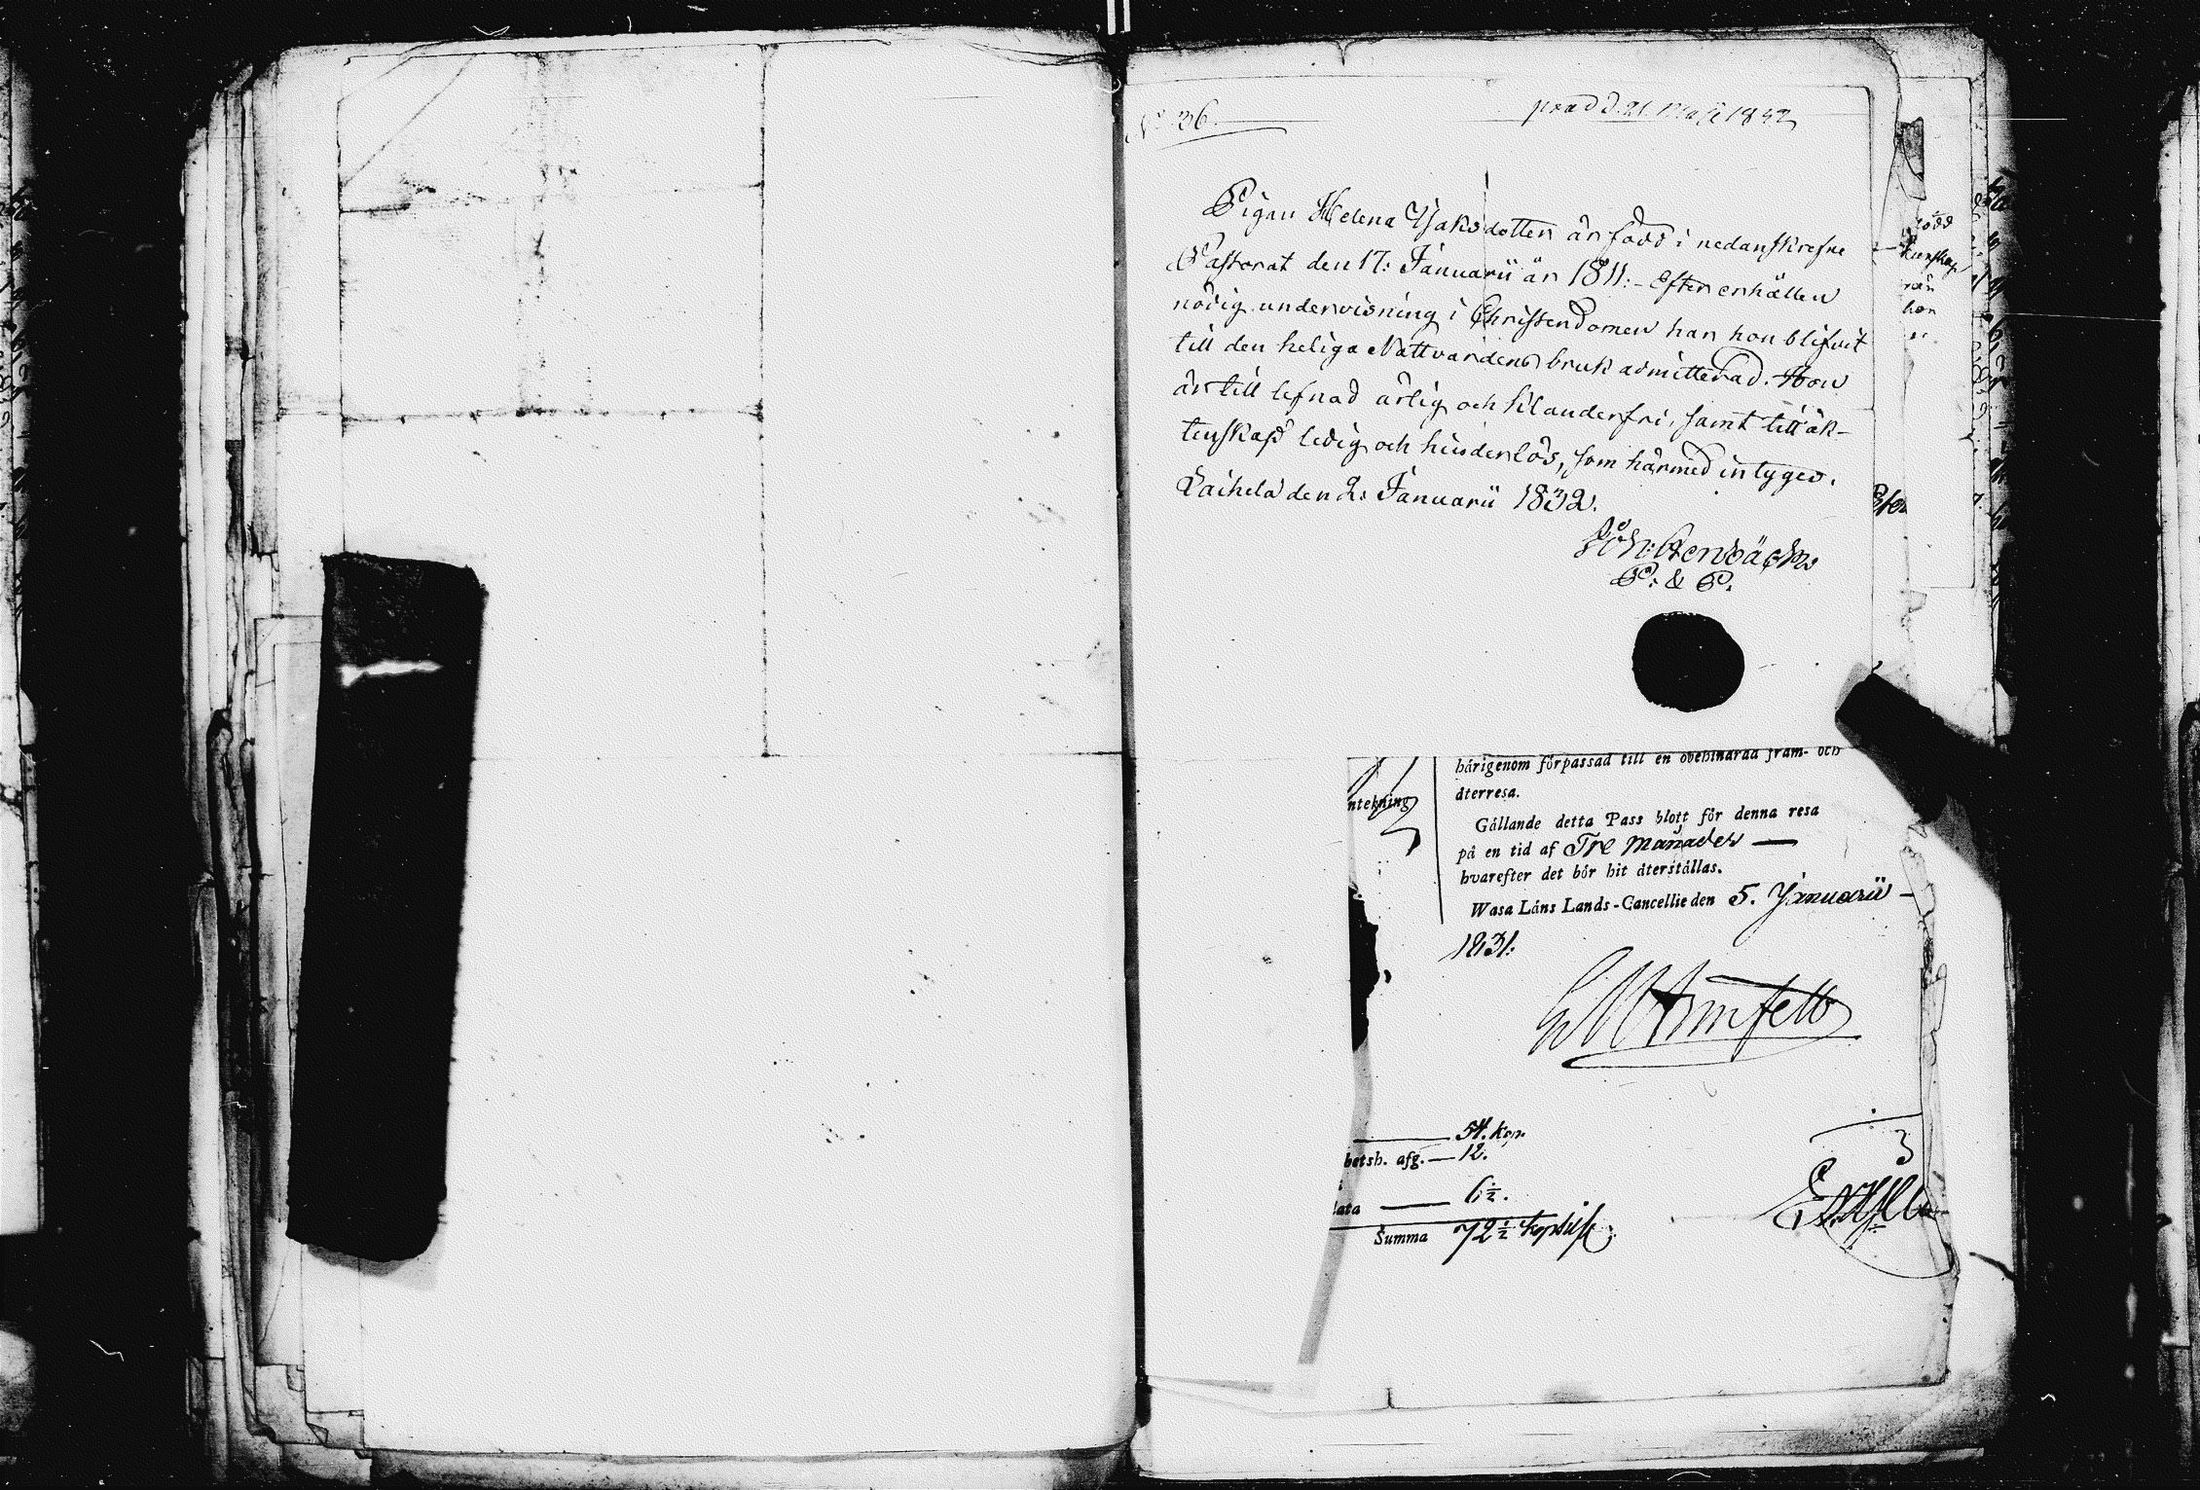 No 36.
prod d. 21 Maji 1832
Pigan Helena Isaksdotter är född i nedanskrefne
Pastorat den 17: Januarii år 1811:- Efter erhållen
nödig undervisning i Christendomen har hon blifvit
till den heliga Nattvardens bruk admitterad. Hon
är till lefnad ärlig och klanderfri, samt till äk-
tenskap ledig och hinderlös, som härmed intygas.
Laihela den 2: Januarii 1832.
Joh: Stenbäck
P: & P:
härigenom förpassad till en obehindrad fram- och
återresa.
ntekning
Gällande detta Pass blott för denna resa
på en tid af Tre Månader —
hvarefter det bör hit återställas.
Wasa Läns Lands-Cancellie den 5. Januarii -
1831.
G M Armfelt
54. kop.
betsh. afg. — 12.
lata — 6 1/2.
Summa 72 1/2 kopek
född
kunskap
hon